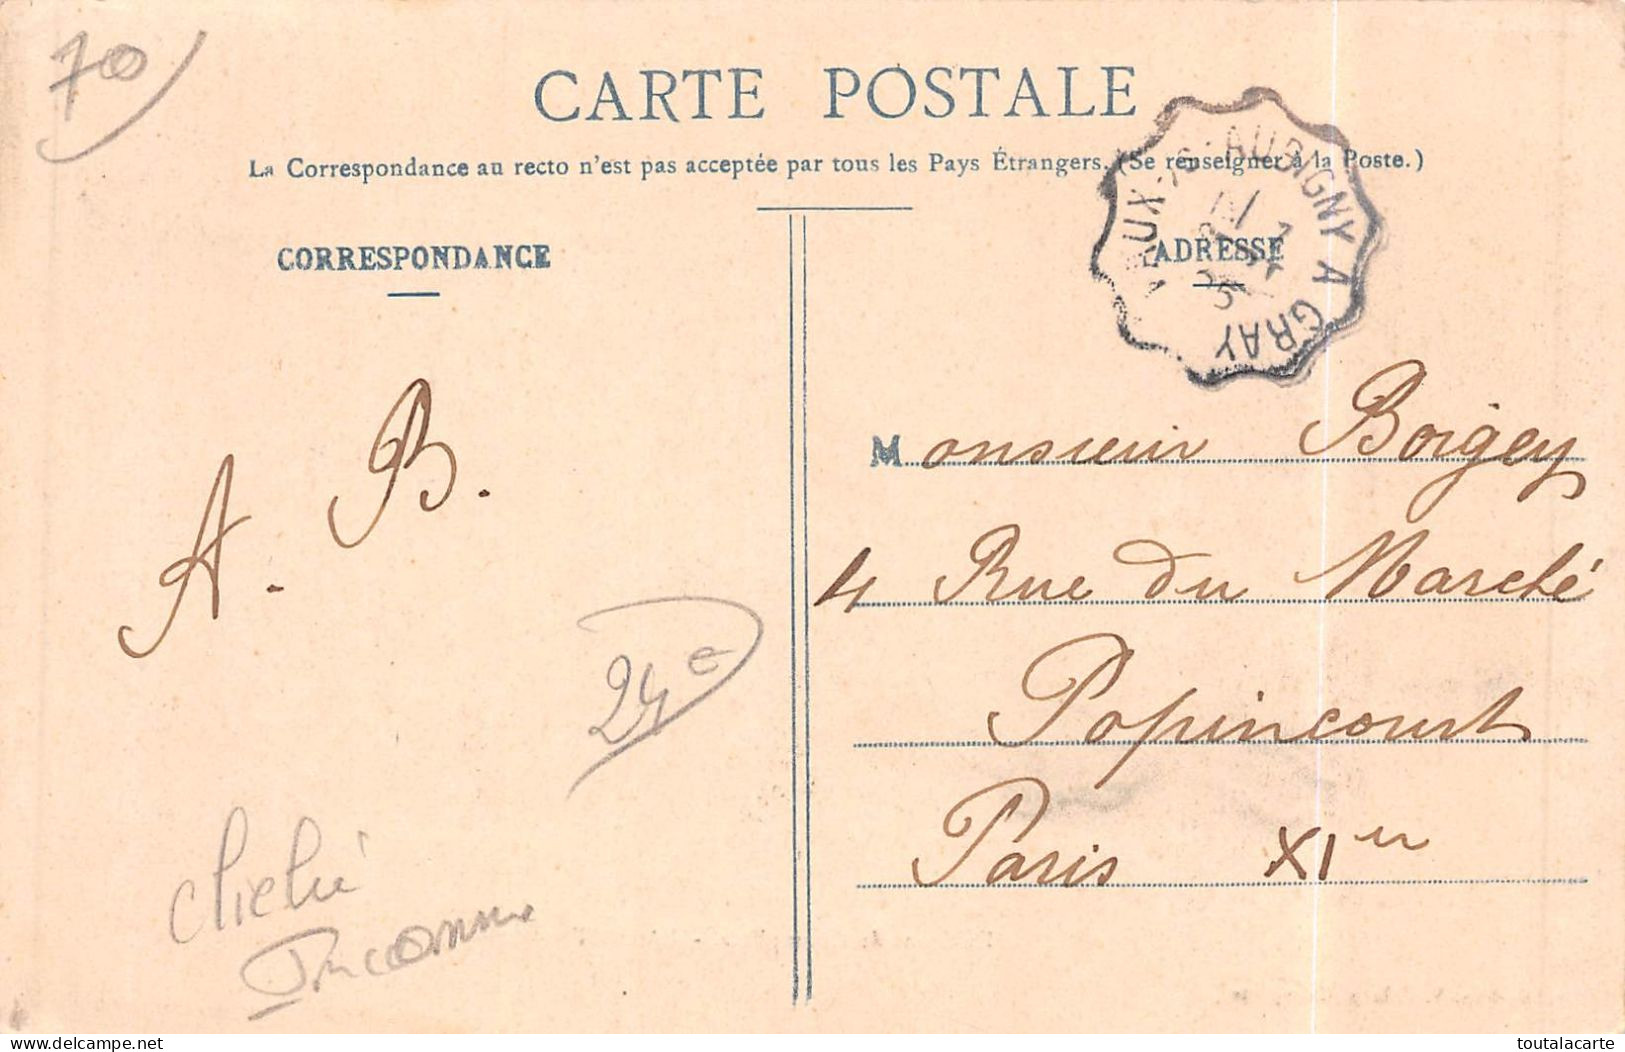 70
CARTE POSTALE
La Correspondance au recto n'est pas acceptée par tous les Pays Étrangers. (Se renseigner à la Poste.)
CORRESPONDANCE
ADRESSE
AUBIGNY A GRAY
A. B.
Monsieur Boigey
4 Rue du Marché
Popincourt
Paris XIer
24e
cliché
Inconnu
toutalacarte